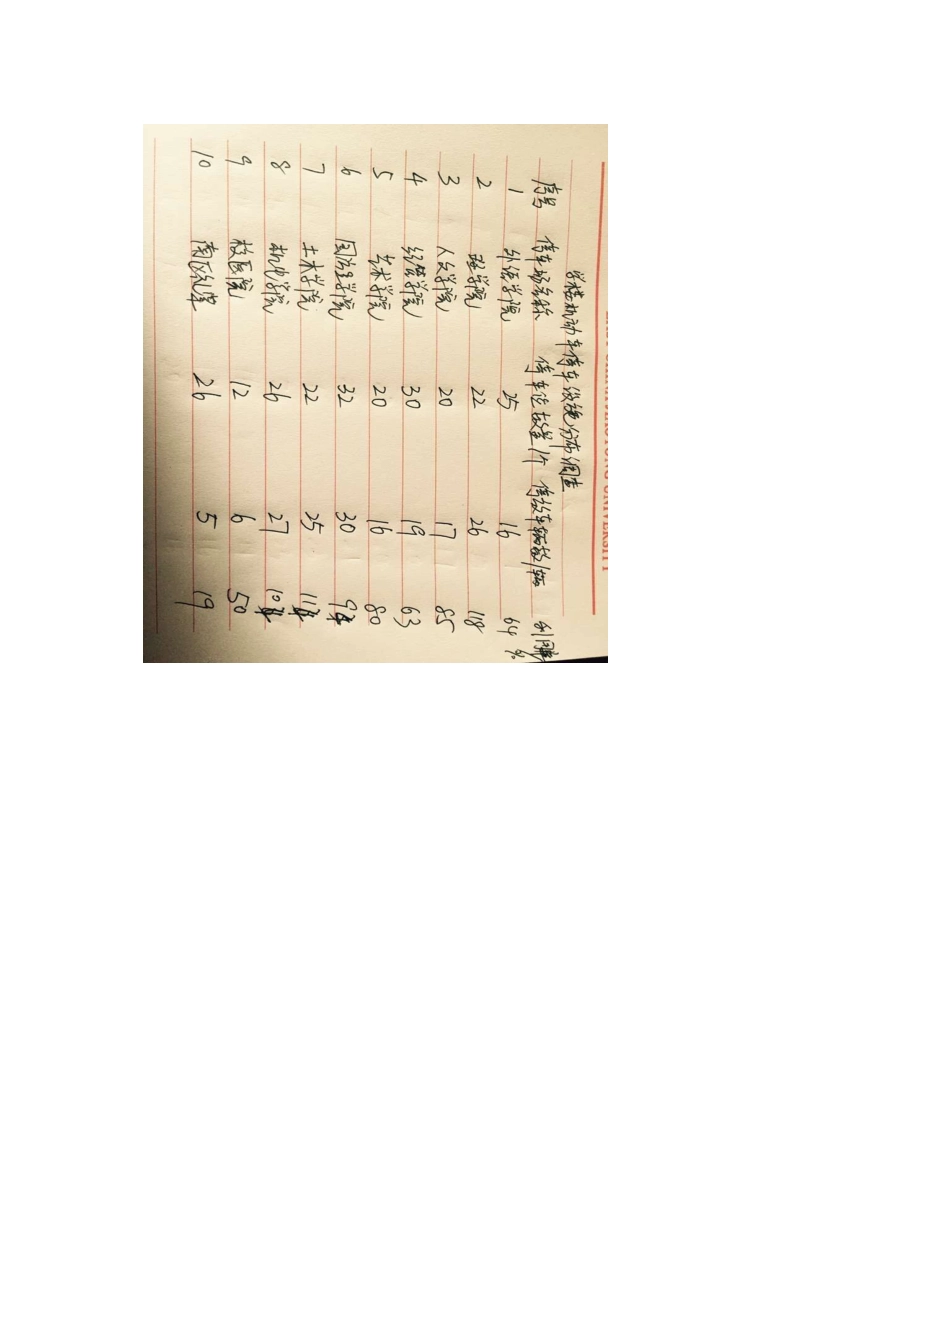 学校机动车停车设施分布调查
序号 停车场名称 停车位数量/个 停放车辆数/辆 利用率
1 外语学院 25 16 64%
2 学院 22 26 118
3 人文学院 20 17 85
4 经管学院 30 19 63
5 艺术学院 20 16 80
6 国治学院 32 30
7 土木学院 22 25
8 机电学院 26 27
9 校医院 12 6 50
10 南区 26 5 19